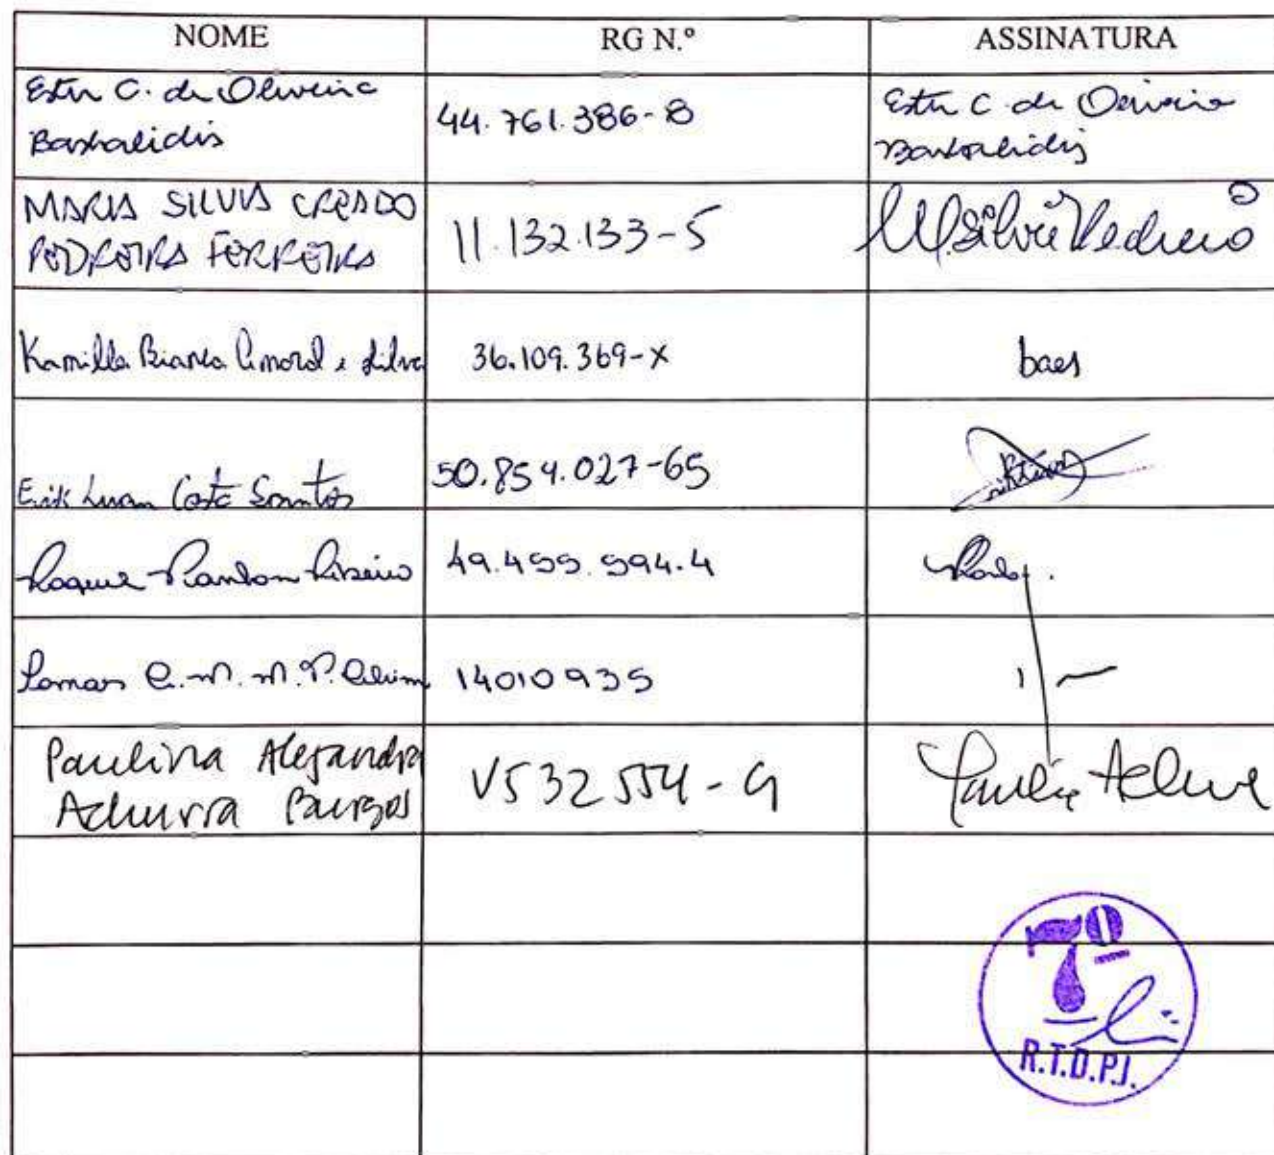 NOME RG N.º ASSINATURA
Ester C. de Oliveira
44.761.386-8
Ester C. de Oliveira
MARIA SILVIA CREADO
PEDREIRA FERREIRA
11.132.133-5
M Silvia Pedreira
Kamilla Bianca Amaral e Silva
36.109.369-X
baes
Erik Luan Costa Santos
50.854.027-65
Roque Ramon Ribeiro
49.455.594.4
C. M. M. P.
14010935
Paulina Alejandra
Achurra Burgos
V532554-G
Paulina Achurra
7º
R.T.D.P.J.